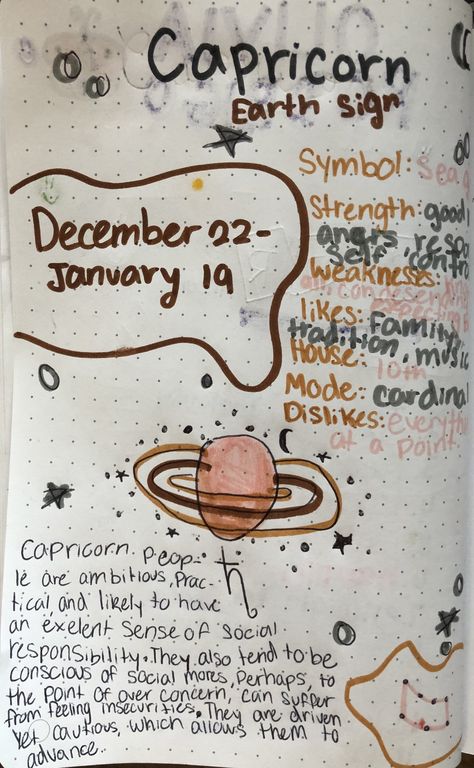 Capricorn
Earth sign
December 22-
January 19
Symbol: Sea
Strength: good
Weakness:
likes: Family,
tradition, music
House: 10th
Mode: cardinal
Dislikes: everyth
at a point
Capricorn. Peop-
le are ambitious, Prac-
tical, and likely to have
an exelent sense of social
responsibility. They also tend to be
conscious of social mores, Perhaps, to
the point of over concern, can suffer
from feeling insecurities. They are driven
yet cautious, which allows them to
advance..